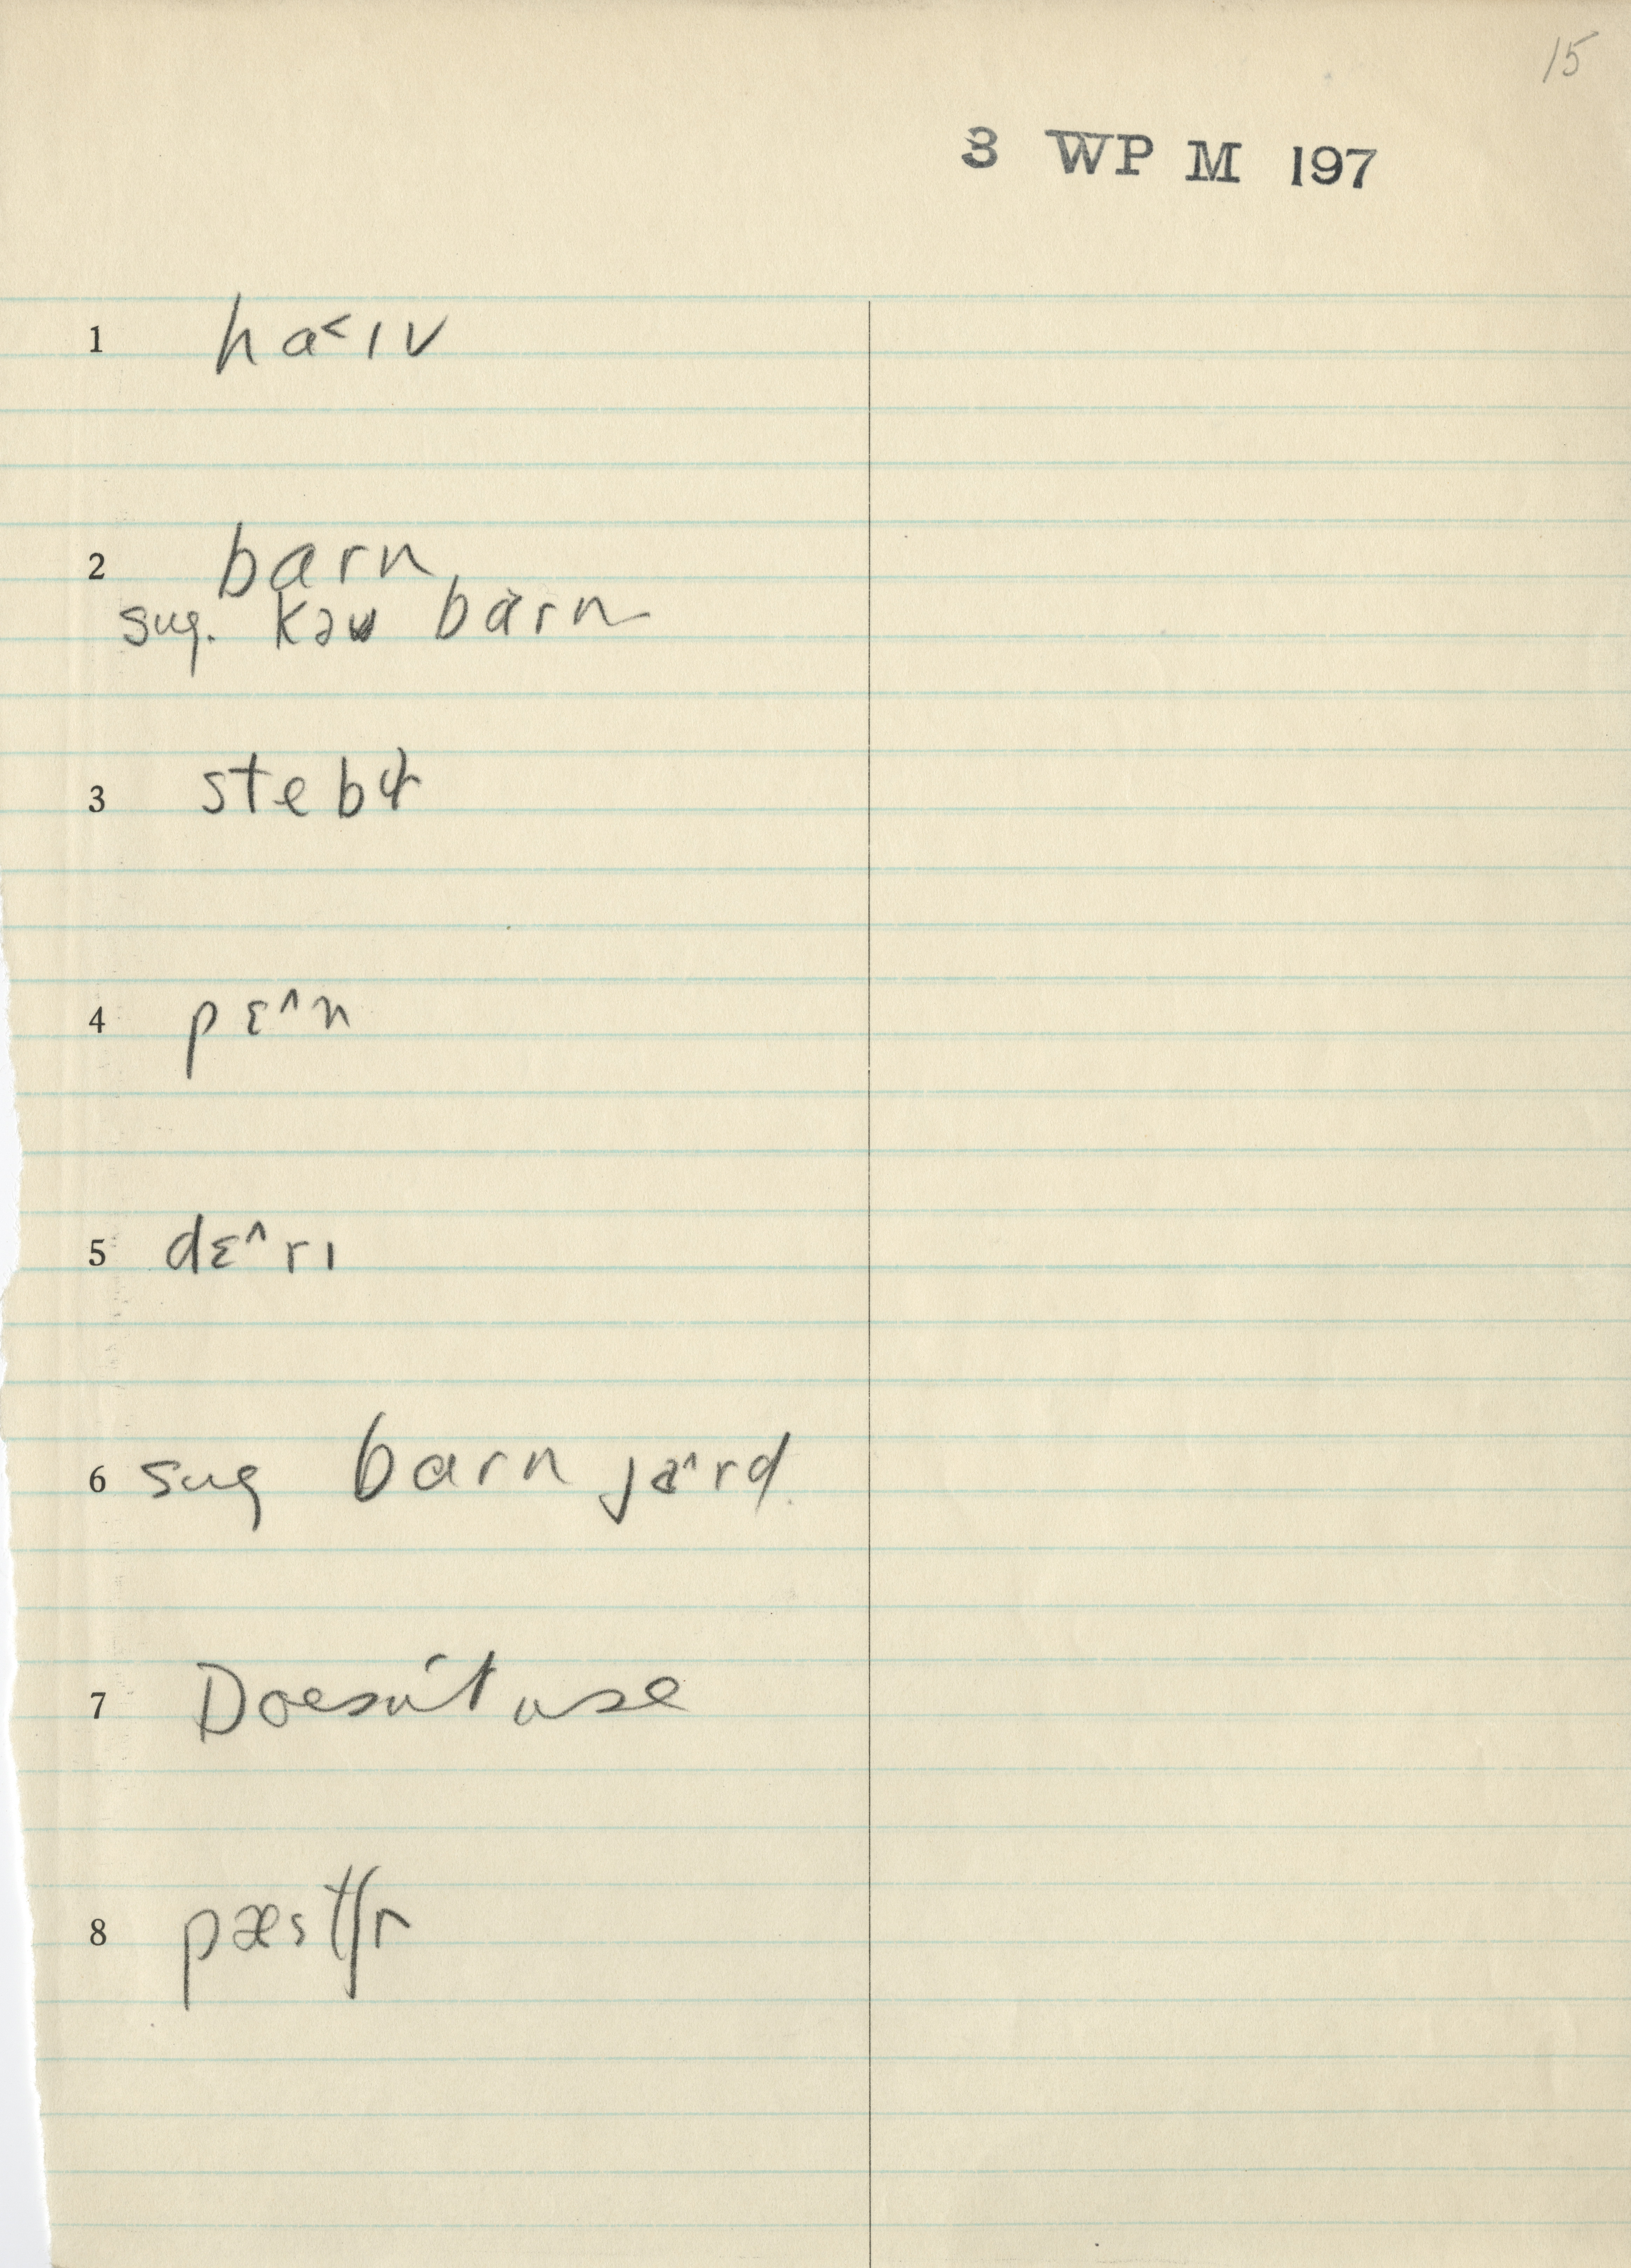 15
3 WP M 197
1 ha˂ɪv
2 barn
sug. kəʊ barn
3 stebɫ
4 pɛ^n
5 dɛ^rɪ
6 sug barn ja^rd
7 Doesn't use
8 pæstʃr